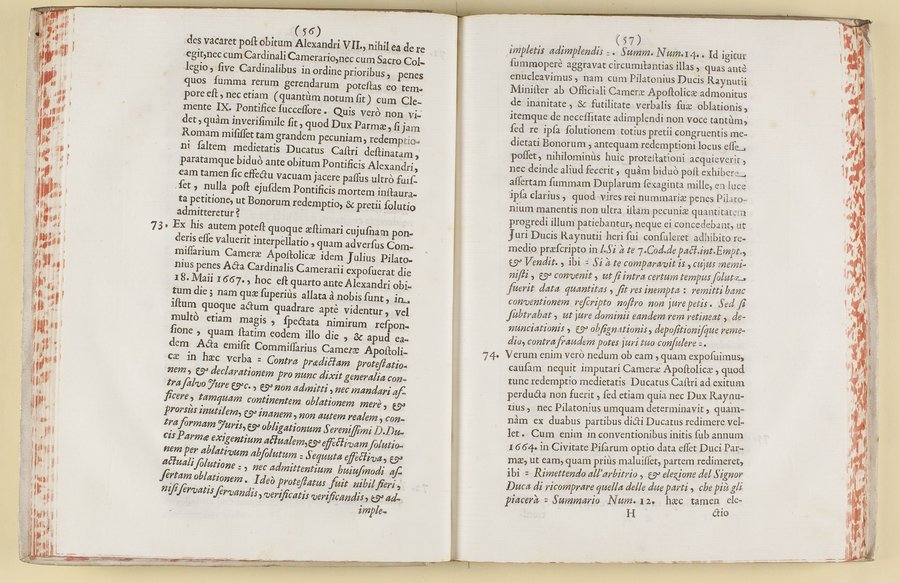 (56)
des vacaret poſt obitum Alexandri VII., nihil ea de re
egit, nec cum Cardinali Camerario, nec cum Sacro Col-
legio, ſive Cardinalibus in ordine prioribus, penes
quos ſumma rerum gerendarum poteſtas eo tem-
pore eſt, nec etiam (quantùm notum ſit) cum Cle-
mente IX. Pontifice ſucceſſore. Quis verò non vi-
det, quàm inveriſimile ſit, quod Dux Parmæ, ſi jam
Romam miſiſſet tam grandem pecuniam, redemptio-
ni ſaltem medietatis Ducatus Caſtri deſtinatam,
paratamque biduò ante obitum Pontificis Alexandri,
eam tamen ſic effectu vacuam jacere paſſus ultrò fuiſ-
ſet, nulla poſt ejuſdem Pontificis mortem inſtaura-
ta petitione, ut Bonorum redemptio, & pretii ſolutio
admitteretur?
73. Ex his autem poteſt quoque æſtimari cujuſnam pon-
deris eſſe valuerit interpellatio, quam adverſus Com-
miſſarium Cameræ Apoſtolicæ idem Julius Pilato-
nius penes Acta Cardinalis Camerarii expoſuerat die
18. Maii 1667., hoc eſt quarto ante Alexandri obi-
tum die; nam quæ ſuperiùs allata à nobis ſunt, in
iſtum quoque actum quadrare aptè videntur, vel
multò etiam magis, ſpectata nimirum reſpon-
ſione, quam ſtatim eodem illo die, & apud ea-
dem Acta emiſit Commiſſarius Cameræ Apoſtoli-
cæ in hæc verba = Contra prædictam proteſtatio-
nem, & declarationem pro nunc dixit generalia con-
tra ſalvo Jure &c., & non admitti, nec mandari af-
ficere, tamquam continentem oblationem merè, &
prorsùs inutilem, & inanem, non autem realem, con-
tra formam Juris, & obligationum Sereniſſimi D. Du-
cis Parmæ exigentium actualem, & effectivam ſolutio-
nem per ablativum abſolutum = Sequuta effectiva, &
actuali ſolutione =, nec admittentium hujuſmodi aſ-
ſertam oblationem. Ideò proteſtatus fuit nihil fieri,
niſi ſervatis ſervandis, verificatis verificandis, & ad-
imple-
(57)
impletis adimplendis =. Summ. Num. 14.. Id igitur
ſummoperè aggravat circumſtantias illas, quas antè
enucleavimus, nam cum Pilatonius Ducis Raynutii
Miniſter ab Officiali Cameræ Apoſtolicæ admonitus
de inanitate, & futilitate verbalis ſuæ oblationis,
itemque de neceſſitate adimplendi non voce tantùm,
ſed re ipſa ſolutionem totius pretii congruentis me-
dietati Bonorum, antequam redemptioni locus eſſe
poſſet, nihilominùs huic proteſtationi acquieverit,
nec deinde aliud fecerit, quàm biduò poſt exhibere
aſſertam ſummam Duplarum ſexaginta mille, en luce
ipſa clarius, quod vires rei nummariæ penes Pilato-
nium manentis non ultra iſtam pecuniæ quantitatem
progredi illum patiebantur, neque ei concedebant, ut
Juri Ducis Raynutii heri ſui conſuleret adhibito re-
medio præſcripto in l. Si à te 7. Cod. de pact. int. Empt.,
& Vendit., ibi = Si à te comparavit is, cujus memi-
niſti, & convenit, ut ſi intra certum tempus ſoluta
fuerit data quantitas, ſit res inempta: remitti hanc
conventionem reſcripto noſtro non jure petis. Sed ſi
ſubtrahat, ut jure dominii eandem rem retineat, de-
nunciationis, & obſignationis, depoſitioniſque reme-
dio, contra fraudem potes juri tuo conſulere =.
74. Verum enim verò nedum ob eam, quam expoſuimus,
cauſam nequit imputari Cameræ Apoſtolicæ, quod
tunc redemptio medietatis Ducatus Caſtri ad exitum
perducta non fuerit, ſed etiam quia nec Dux Raynu-
tius, nec Pilatonius umquam determinavit, quam-
nàm ex duabus partibus dicti Ducatus redimere vel-
let. Cum enim in conventionibus initis ſub annum
1664. in Civitate Piſarum optio data eſſet Duci Par-
mæ, ut eam, quam priùs maluiſſet, partem redimeret,
ibi = Rimettendo all'arbitrio, & elezione del Signor
Duca di ricomprare quella delle due parti, che più gli
piacerà = Summario Num. 12. hæc tamen ele-
H
ctio